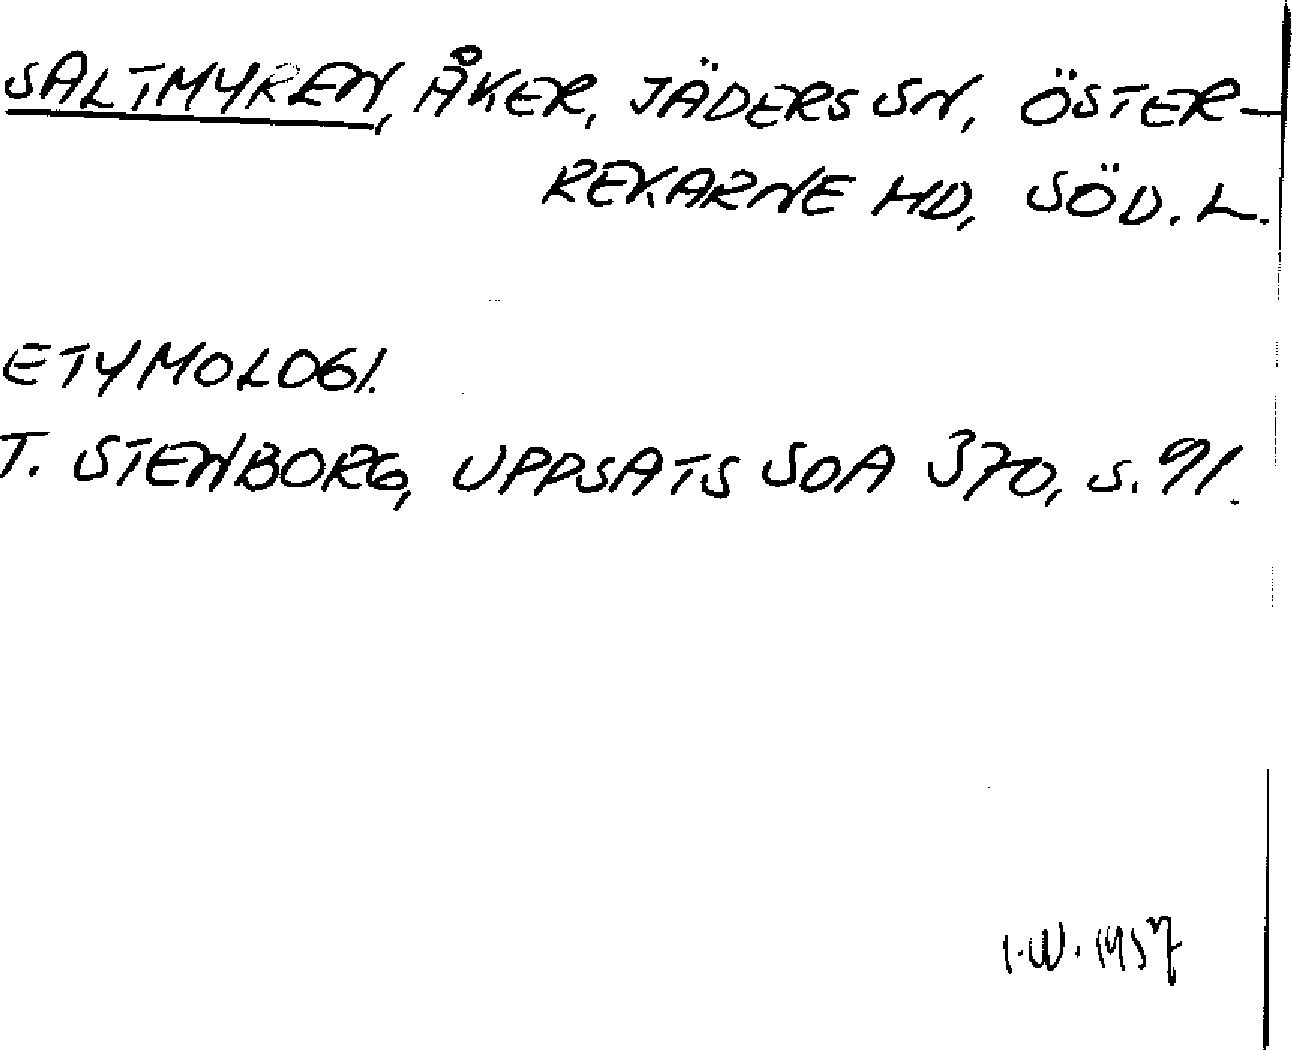 SALTMYREN, ÅKER, JÄDERS SN, ÖSTER-
REKARNE HD, SÖD. L.
ETYMOLOGI.
T. STENBORG, UPPSATS SOA 370, S. 91.
I.W. 1957